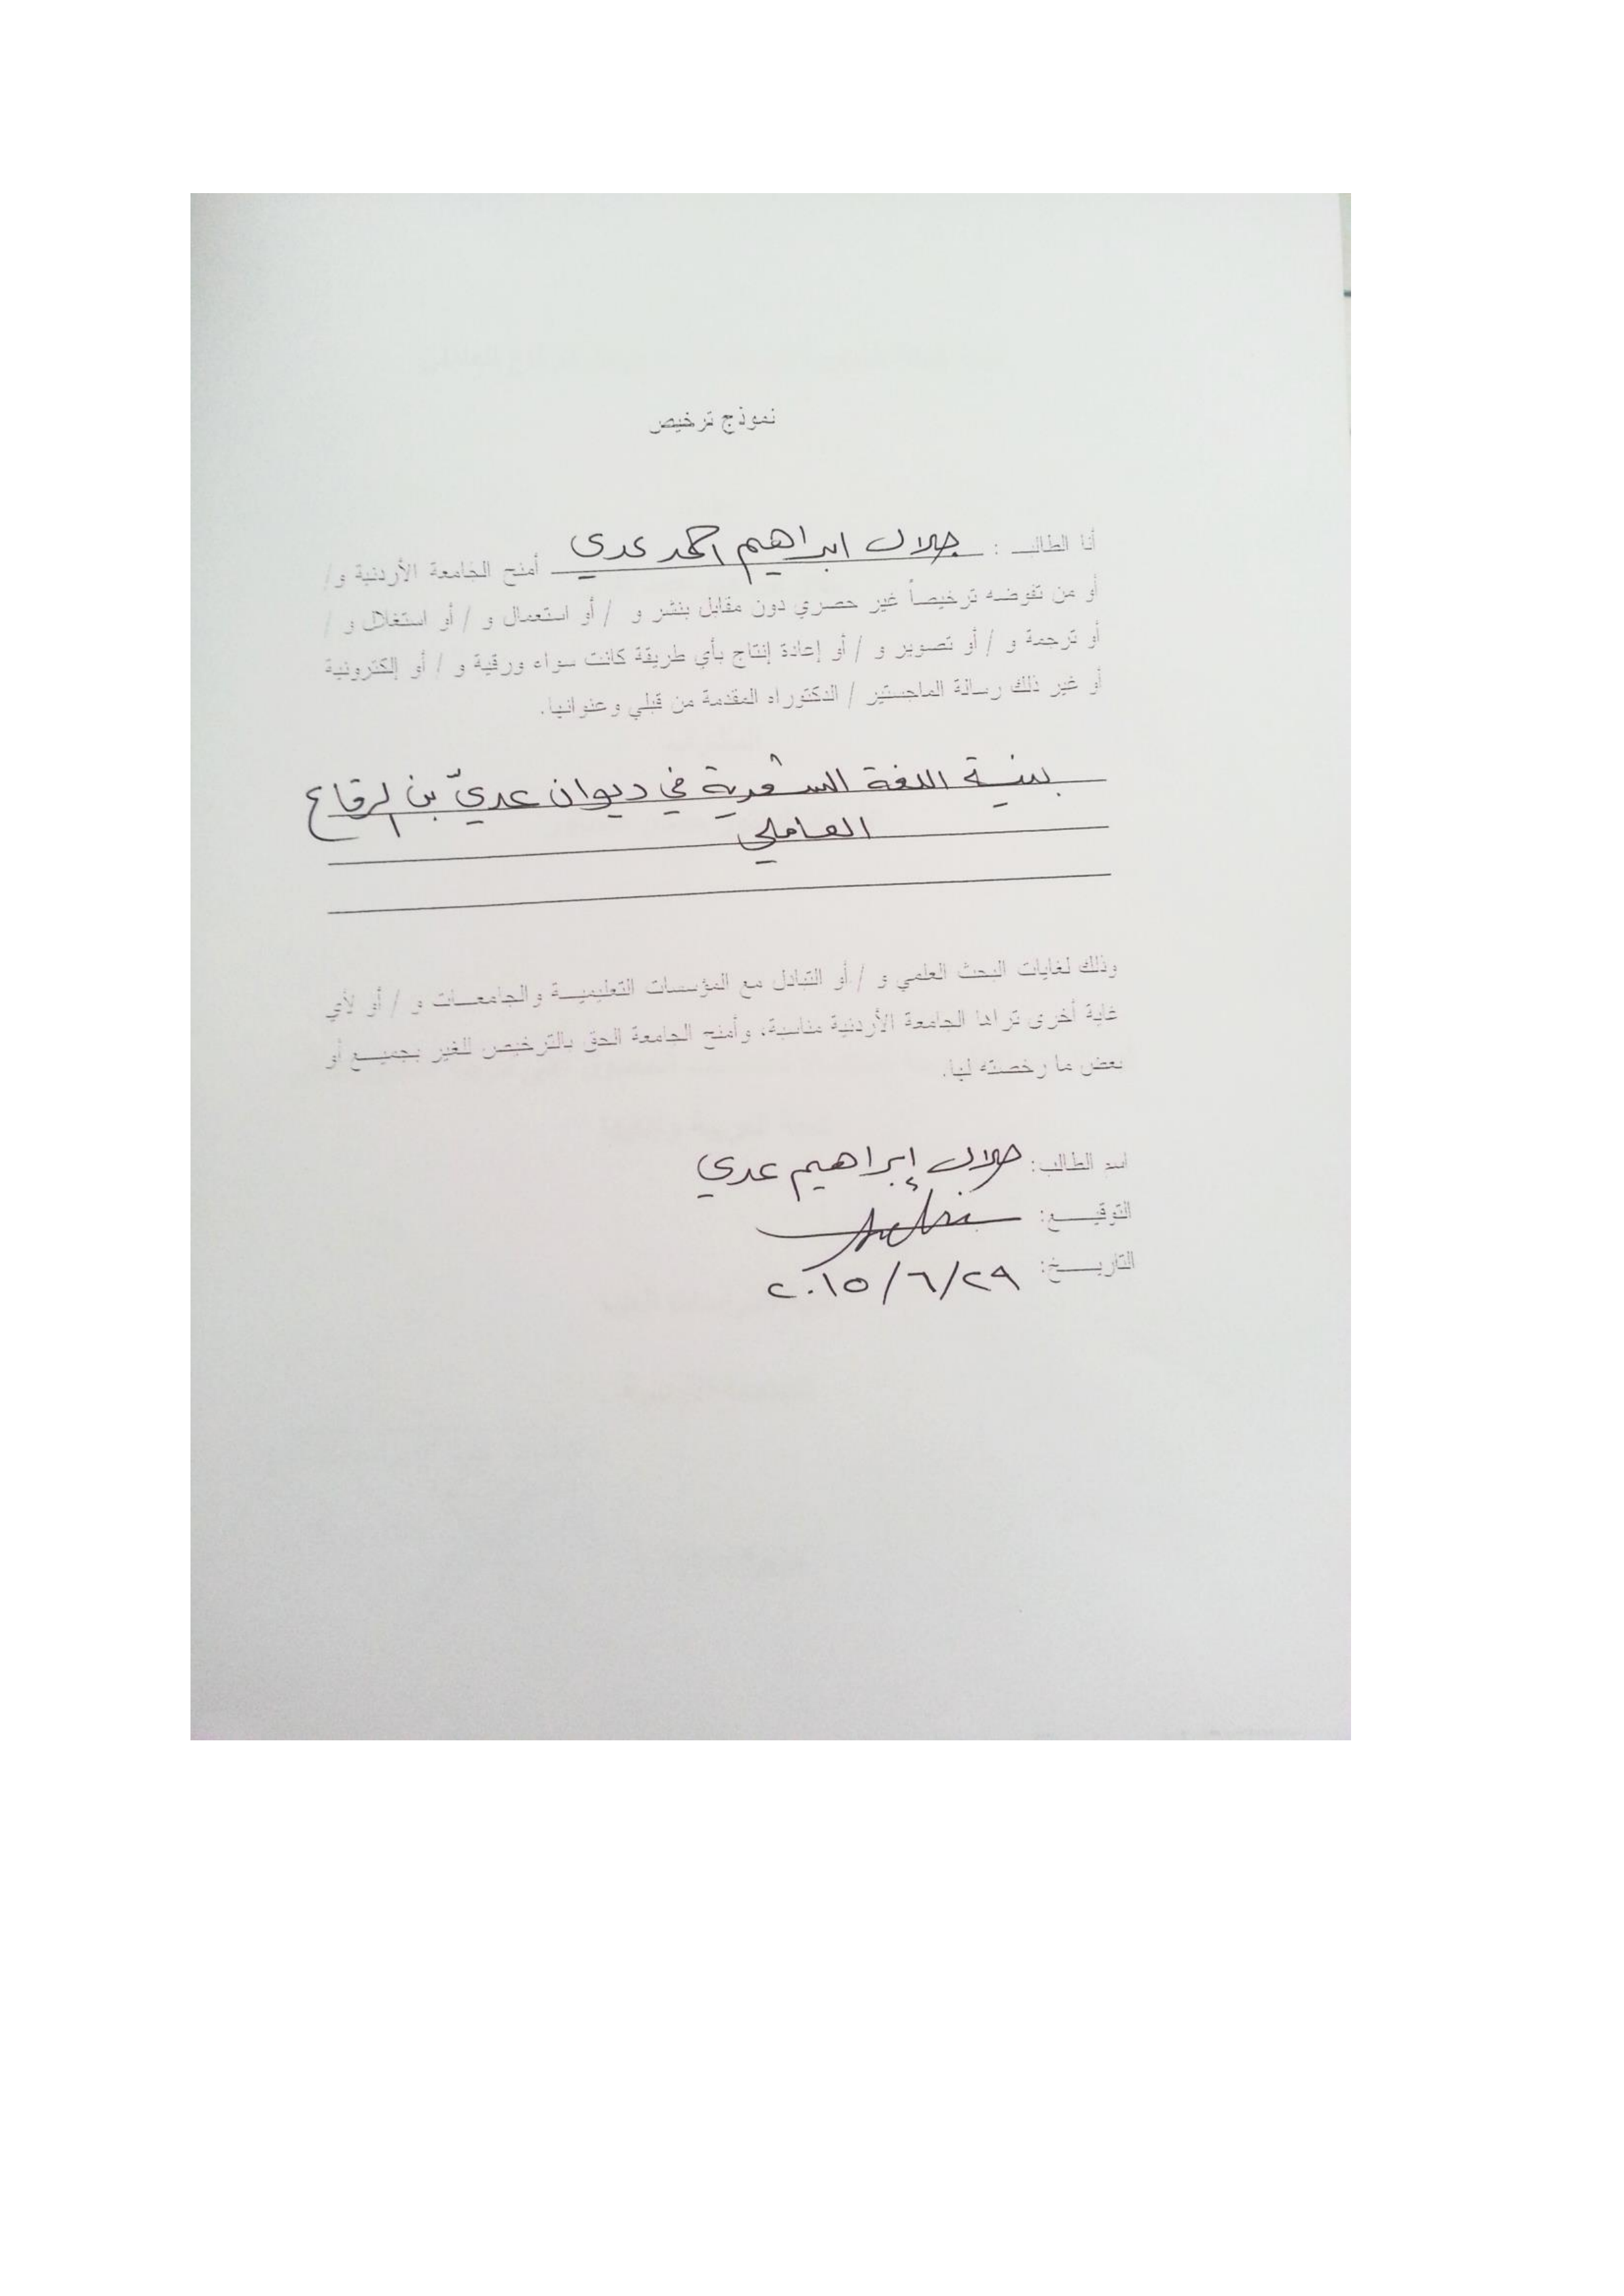 نموذج ترخيص
أنا الطالب : جلال ابراهيم احمد عدي أمنح الجامعة الأردنية و/
أو من تفوضه ترخيصاً غير حصري دون مقابل بنشر و / أو استعمال و / أو استغلال و /
أو ترجمة و / أو تصوير و / أو إعادة إنتاج بأي طريقة كانت سواء ورقية و / أو إلكترونية
أو غير ذلك رسالة الماجستير / الدكتوراه المقدمة من قبلي وعنوانها.
بنية اللغة الشعرية في ديوان عديّ بن الرقاع
العاملي
وذلك لغايات البحث العلمي و / أو التبادل مع المؤسسات التعليمية والجامعات و / أو لأي
غاية أخرى تراها الجامعة الأردنية مناسبة، وأمنح الجامعة الحق بالترخيص للغير بجميع أو
بعض ما رخصته لها.
اسم الطالب: جلال إبراهيم عدي
التوقيع:
التاريخ: ٢٠١٥/٦/٢٩